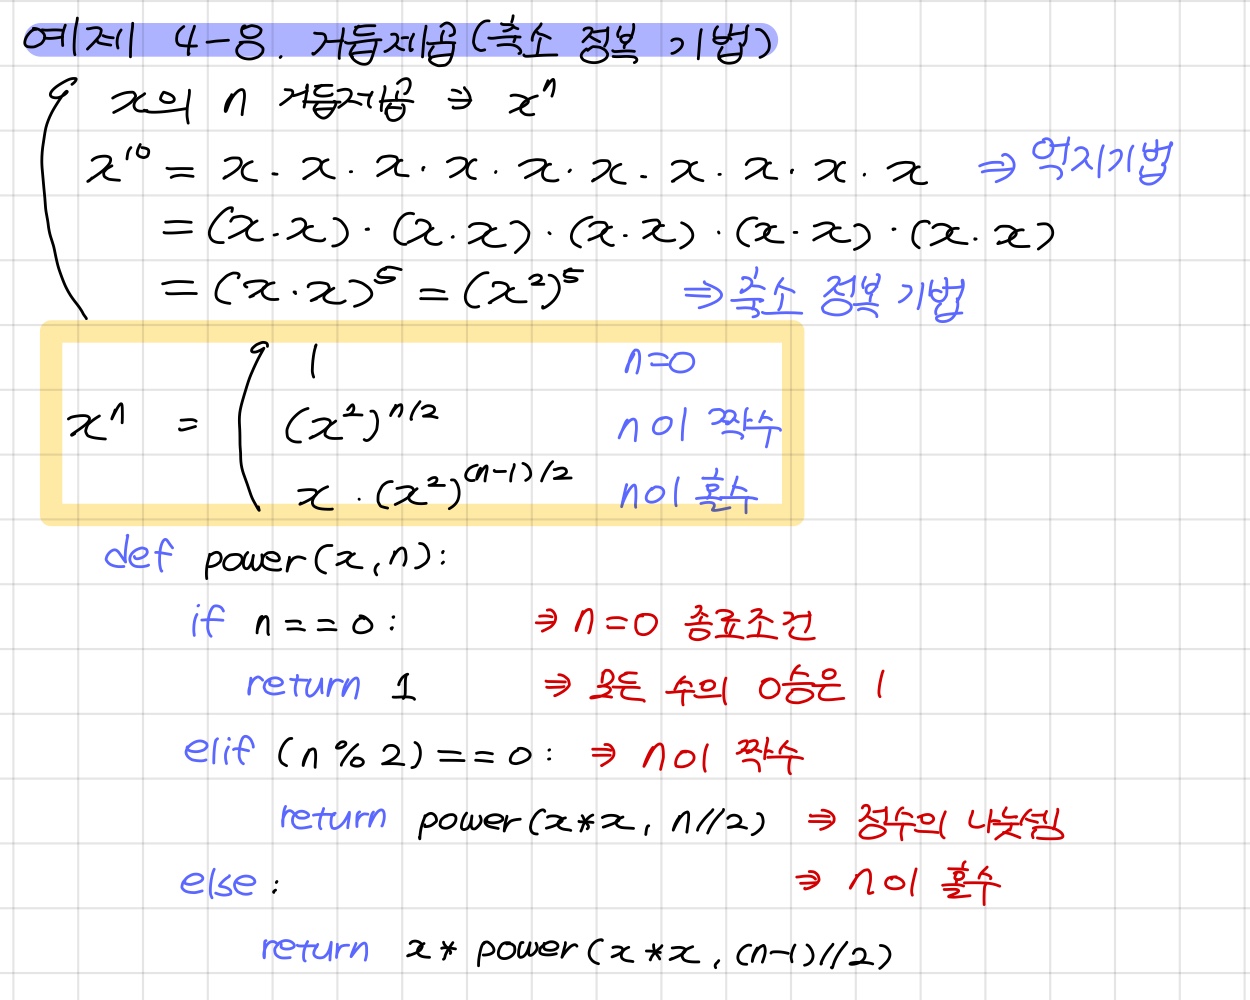 예제 4-8. 거듭제곱(축소 정복 기법)
x의 n 거듭제곱 ⇒ xⁿ
x¹⁰ = x · x · x · x · x · x · x · x · x · x ⇒ 억지기법
= (x·x) · (x·x) · (x·x) · (x·x) · (x·x)
= (x·x)⁵ = (x²)⁵ ⇒ 축소 정복 기법
1 n=0
xⁿ = (x²)^(n/2) n이 짝수
x · (x²)^((n-1)/2) n이 홀수
def power(x,n):
if n==0: ⇒ n=0 종료조건
return 1 ⇒ 모든 수의 0승은 1
elif (n%2)==0: ⇒ n이 짝수
return power(x*x, n//2) ⇒ 정수의 나눗셈
else: ⇒ n이 홀수
return x* power(x*x, (n-1)//2)